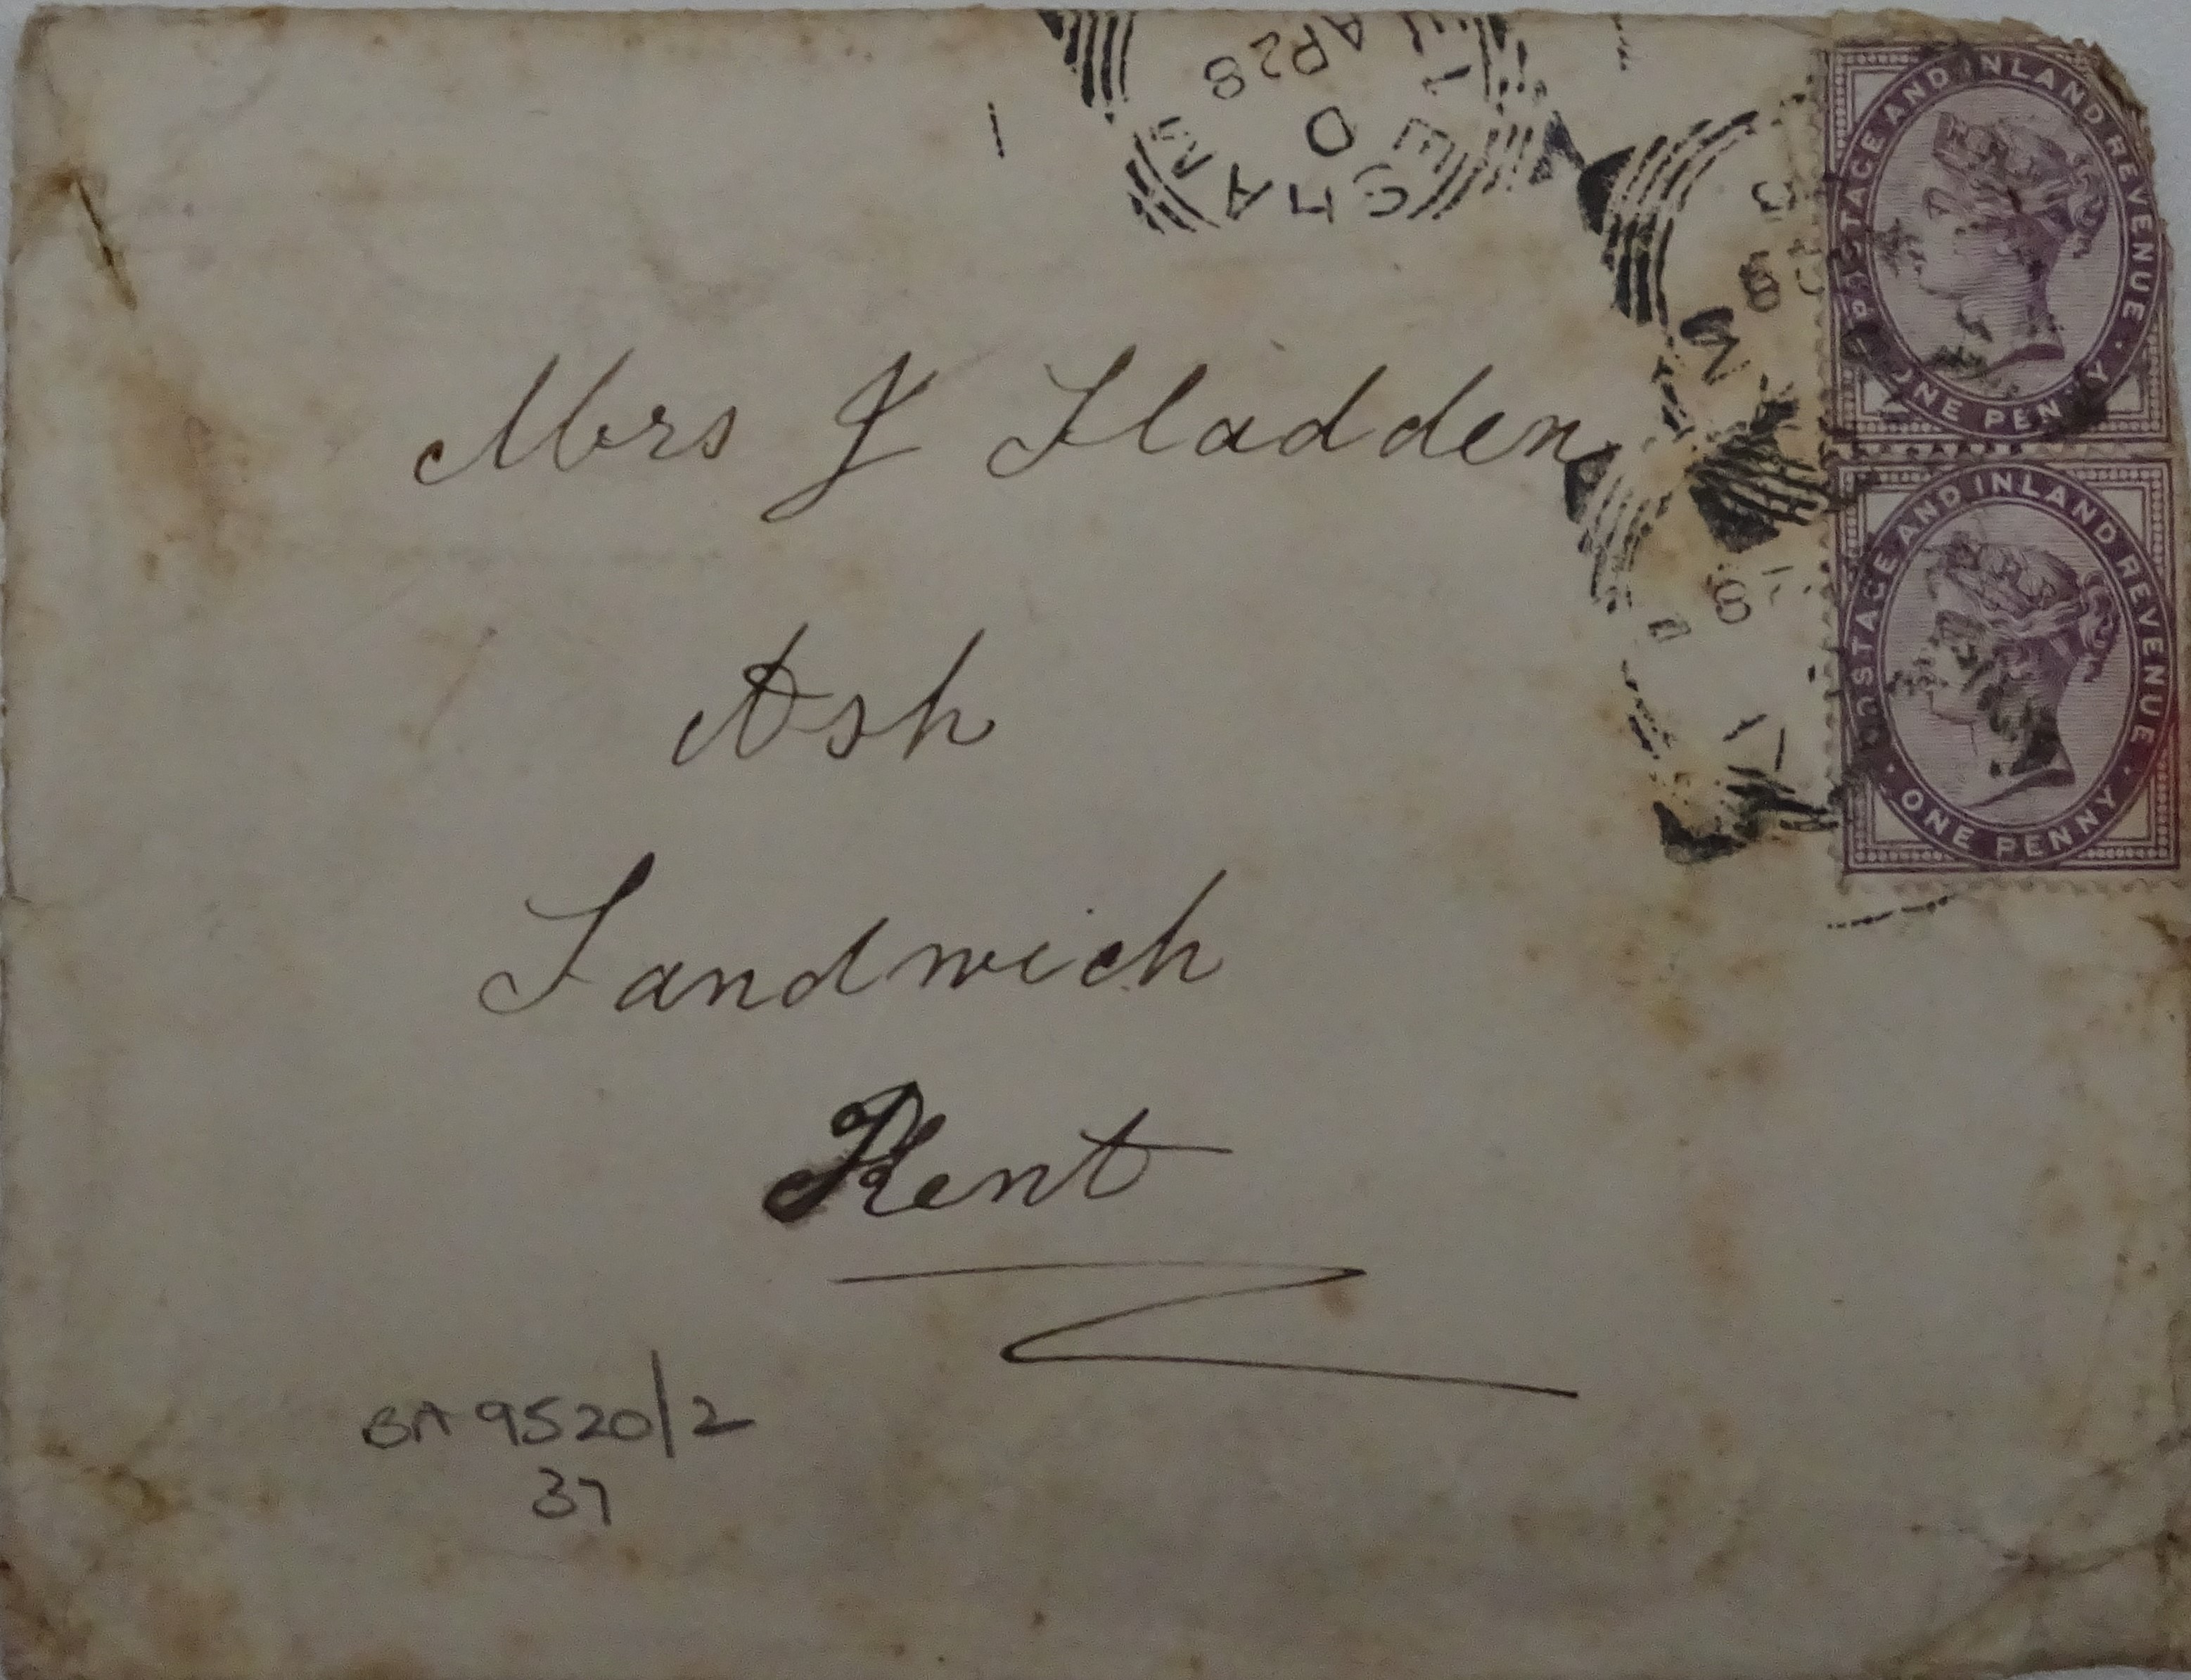 Mrs J Sladden
Ash
Sandwich
Kent
BA 9520/2
37
POSTAGE AND INLAND REVENUE
ONE PENNY
POSTAGE AND INLAND REVENUE
ONE PENNY
AP 28